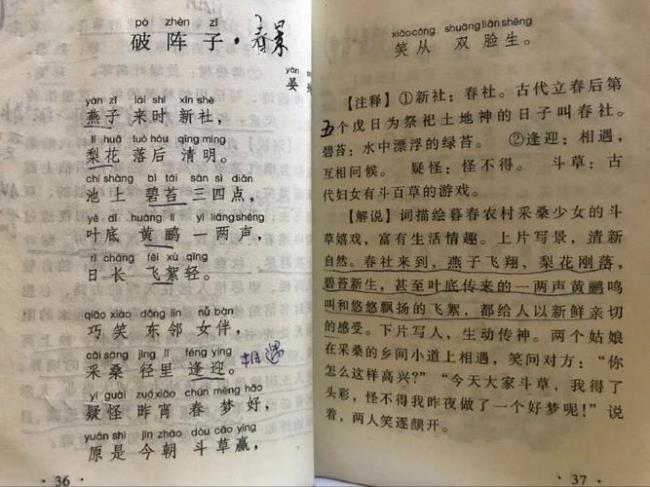 pò zhèn zǐ
破阵子·春景
yàn
晏
yàn zǐ lái shí xīn shè
燕子 来时 新社，
lí huā luò hòu qīng míng
梨花 落后 清明。
chí shàng bì tái sān sì diǎn
池上 碧苔 三四点，
yè dǐ huáng lí yì liǎng shēng
叶底 黄鹂 一两声，
rì cháng fēi xù qīng
日长 飞絮轻。
qiǎo xiào dōng lín nǚ bàn
巧笑 东邻 女伴，
cǎi sāng jìng lǐ féng yíng
采桑 径里 逢迎。相遇
yí guài zuó xiāo chūn mèng hǎo
疑怪 昨宵 春梦好，
yuán shì jīn zhāo dòu cǎo yíng
原是 今朝 斗草赢，
36
xiào cóng shuāng liǎn shēng
笑从 双脸生。
【注释】①新社：春社。古代立春后第
五个戊日为祭祀土地神的日子叫春社。
碧苔：水中漂浮的绿苔。 ②逢迎：相遇，
互相问候。 疑怪：怪不得。 斗草：古
代妇女有斗百草的游戏。
【解说】词描绘暮春农村采桑少女的斗
草嬉戏，富有生活情趣。上片写景，清新
自然。春社来到，燕子飞翔，梨花刚落，
碧苔新生，甚至叶底传来的一两声黄鹂鸣
叫和悠悠飘扬的飞絮，都给人以新鲜亲切
的感受。下片写人，生动传神。两个姑娘
在采桑的乡间小道上相遇，笑问对方：“你
怎么这样高兴？”“今天大家斗草，我得了
头彩，怪不得我昨夜做了一个好梦呢！”说
着，两人笑逐颜开。
37